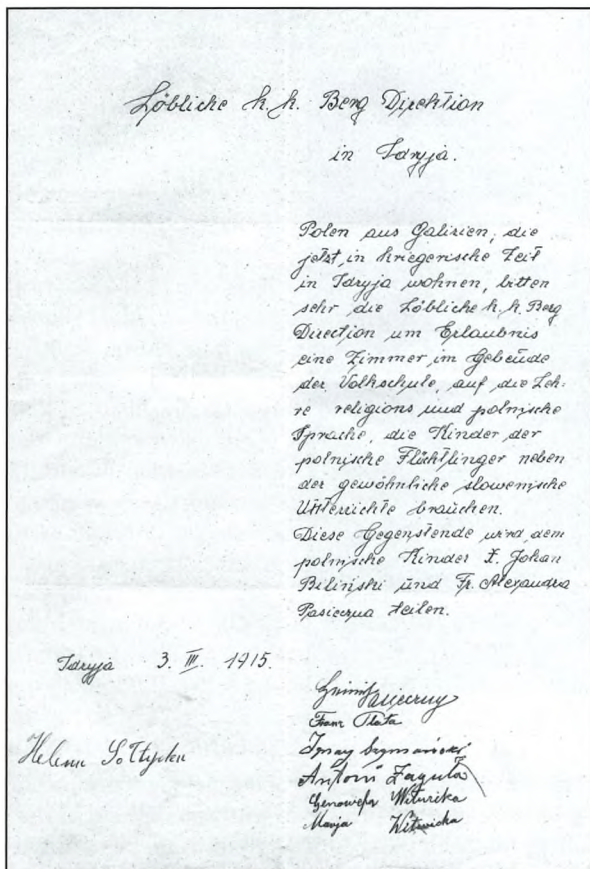 Löbliche k. k. Berg Direktion
in Idryja.
Polen aus Galizien, die
jetzt, in kriegerische Zeit
in Idryja wohnen, bitten
sehr die Löbliche k. k. Berg
Direction um Erlaubnis
eine Zimmer, im Gebeude
der Volkschule, auf die Leh-
re religions und polnische
Sprache, die Kinder der
polnische Flüchtlinger neben
der gewöhnliche slowenische
Unterrichte brauchen.
Diese Gegenstende wird dem
polnische Kinder X. Johan
Biliński und Fr. Alexandra
Pasieczna teilen.
Idryja 3. III. 1915.
Franz
Helena
Ignacy Szymański
Antoni Zaguła
Genowefa
Marja Witwicka